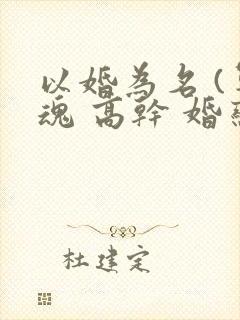 以婚為名 (
魂 高幹 婚
杜建定